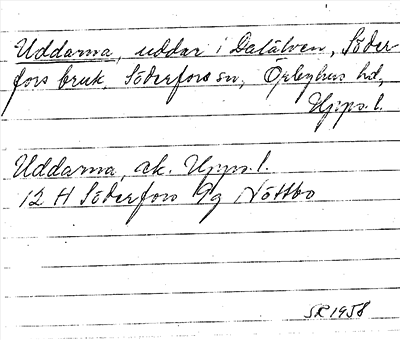 Uddarna, uddar i Dalälven, Söder
fors bruk, Söderfors sn, Örbyhus hd,
Upps. l.
Uddarna, ek. Upps. l.
12 H Söderfors 9g Nöttbo
SR 1958